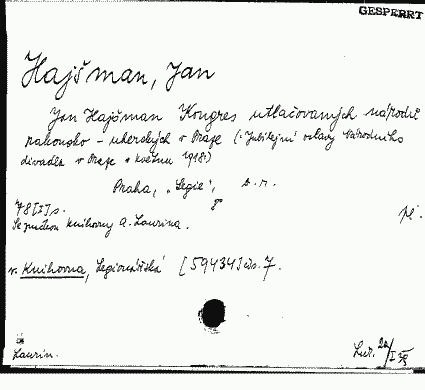 GESPERRT
Hajšman, Jan
Jan Hajšman Kongres utlačovaných národů
rakousko-uherských v Praze (: Jubilejní oslavy Národního
divadla v Praze v květnu 1918:)
Praha, "Legie", b. r.
78 [I] s. 8°
Se znakem knihovny A. Laurina.
v. Knihovna, Legionářská [59434] čís. 7.
Laurin.